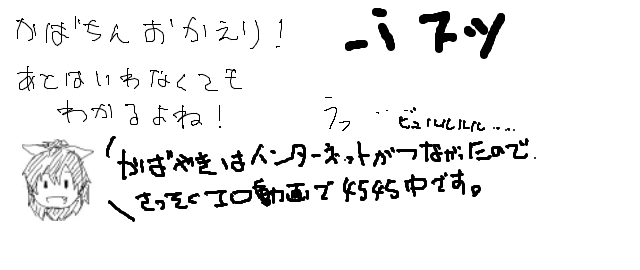 かばちん おかえり！
あとはいわなくても
わかるよね！
うっ …ビュルルルル……
かばやきはインターネットがつながったので
さっそくエロ動画で4545中です。